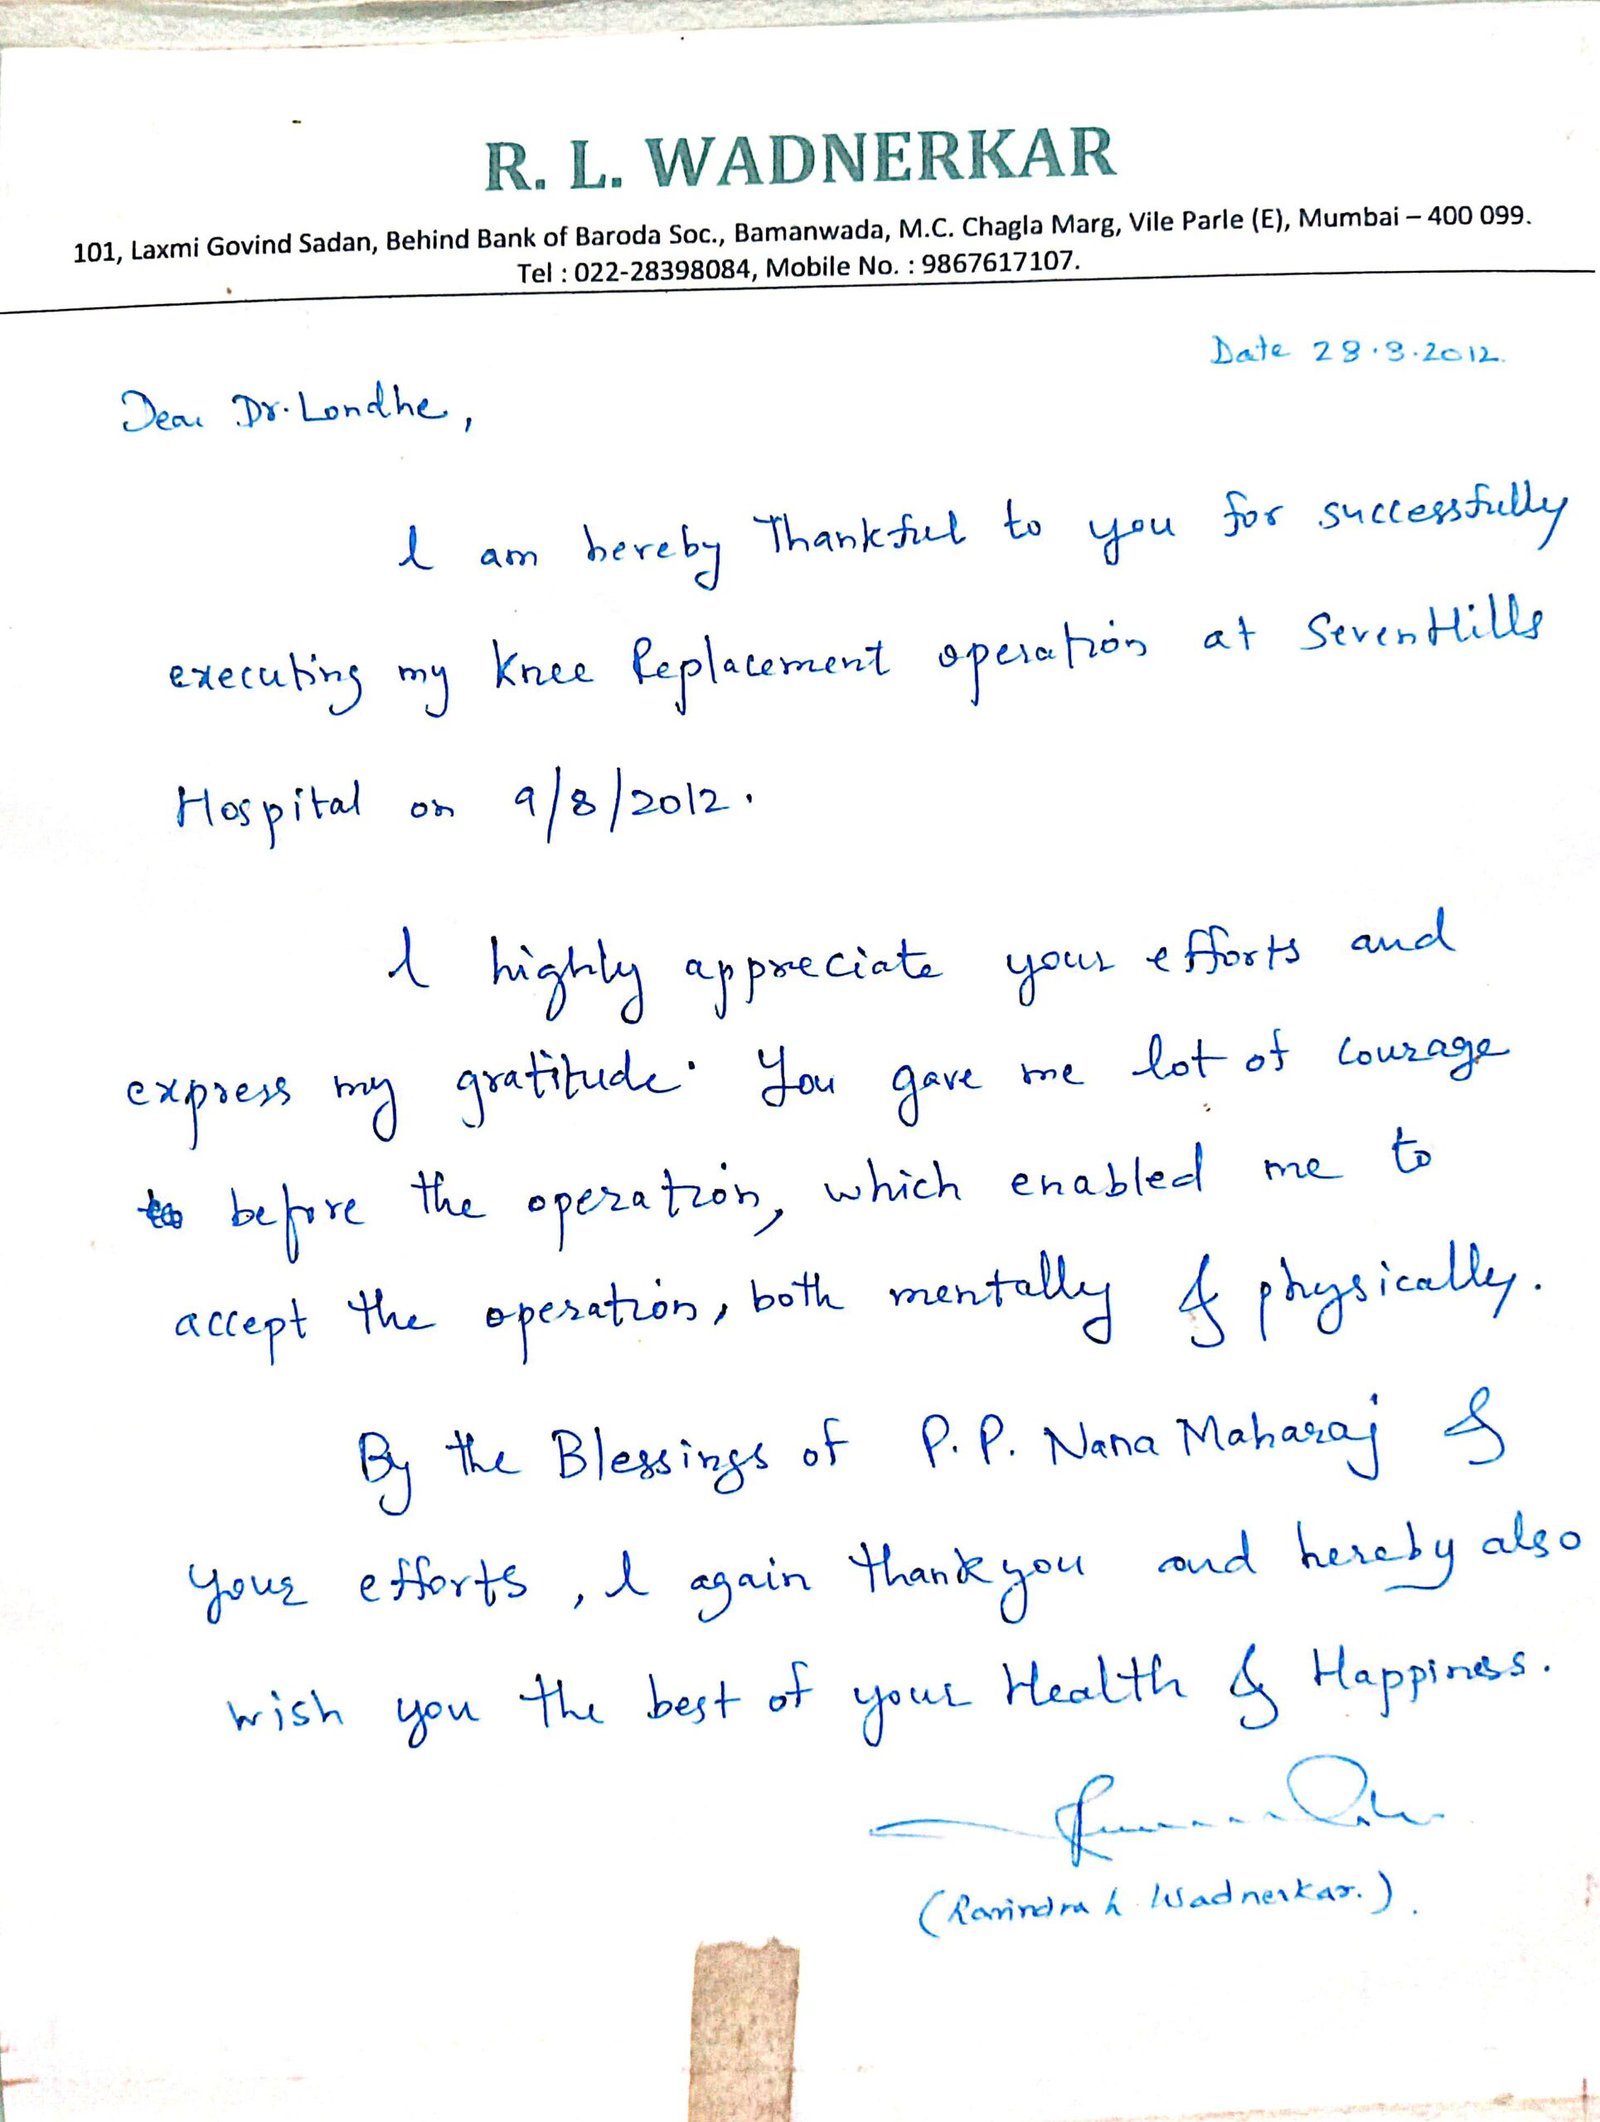 R. L. WADNERKAR
101, Laxmi Govind Sadan, Behind Bank of Baroda Soc., Bamanwada, M.C. Chagla Marg, Vile Parle (E), Mumbai – 400 099.
Tel : 022-28398084, Mobile No. : 9867617107.
Date 28.8.2012.
Dear Dr. Londhe,
I am hereby Thankful to you for successfully
executing my Knee Replacement operation at SevenHills
Hospital on 9/8/2012.
I highly appreciate your efforts and
express my gratitude. You gave me lot of courage
before the operation, which enabled me to
accept the operation, both mentally & physically.
By the Blessings of P.P. Nana Maharaj &
your efforts, I again thankyou and hereby also
wish you the best of your Health & Happiness.
(Ravindra L Wadnerkar.).